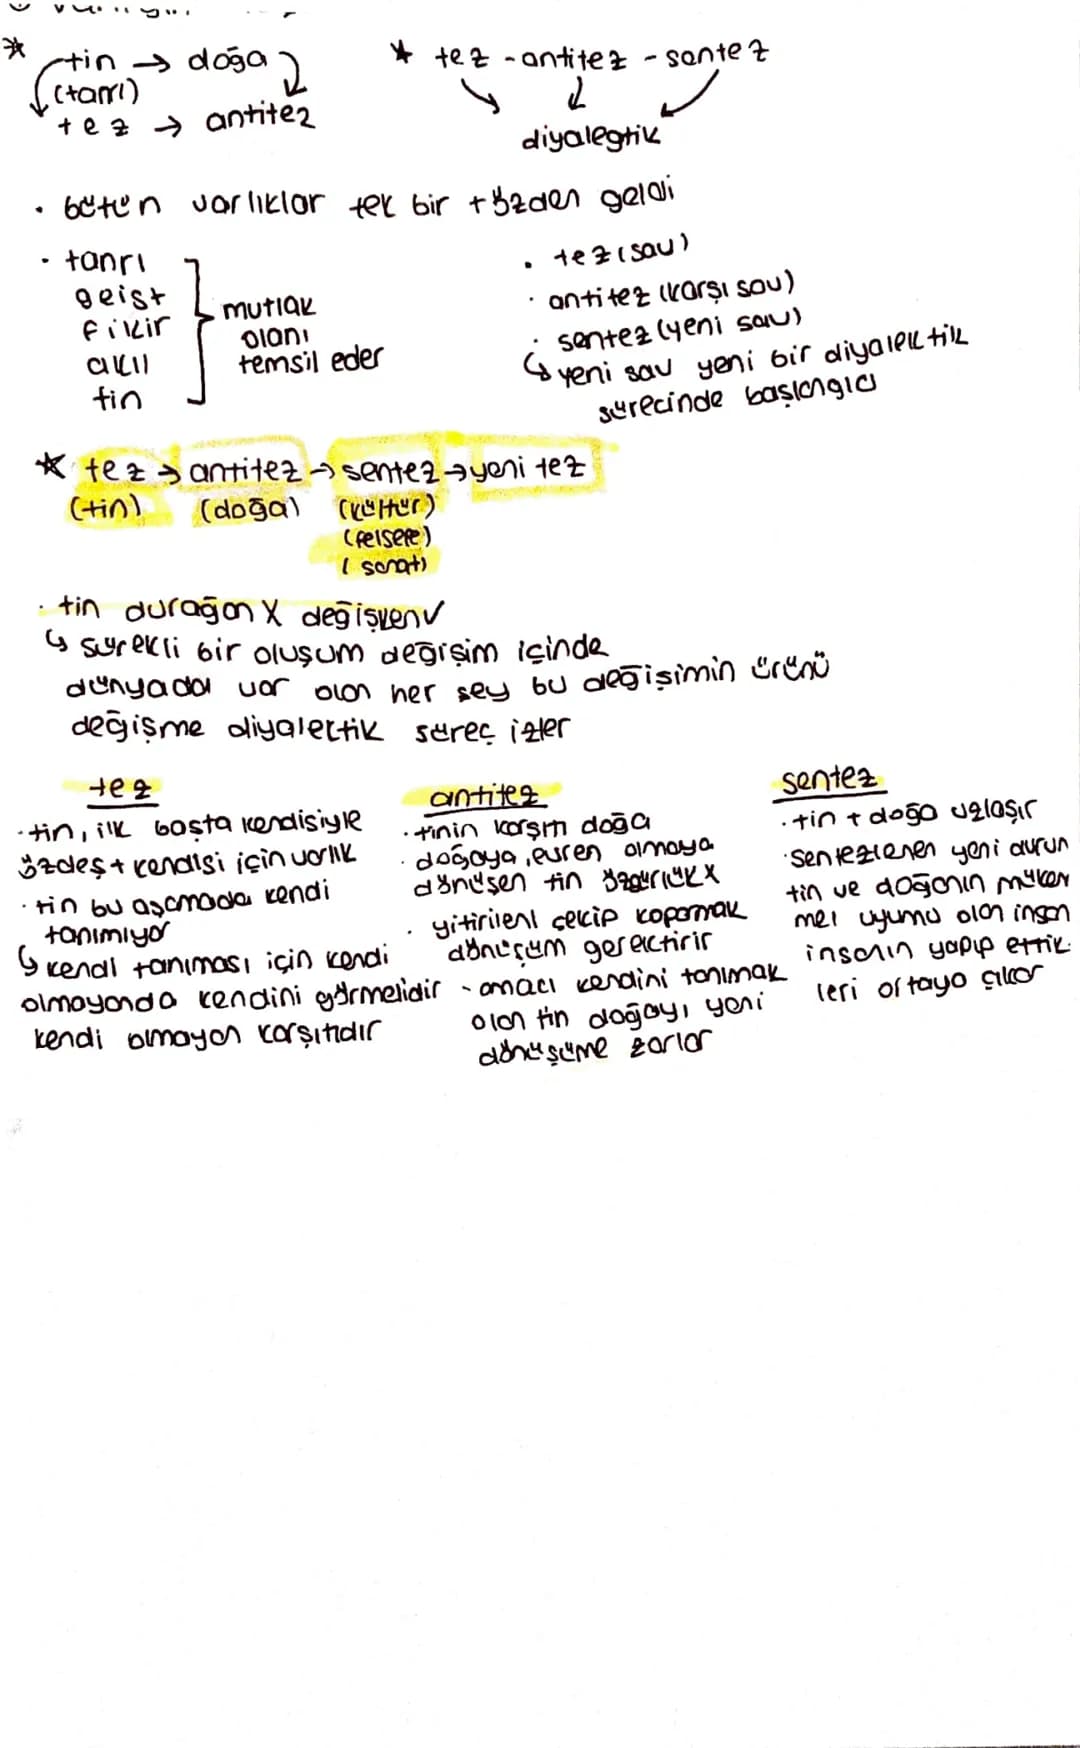 * tin → doğa
(tanrı)
tez → antitez
* tez - antitez - santez
diyalegtik
· bütün varlıklar tek bir tözden geldi
· tanrı
geist
fikir
akıl
tin
mutlak
olanı
temsil eder
· tez (sav)
· antitez (karşı sav)
· sentez (yeni sav)
↳ yeni sav yeni bir diyalektik
sürecinde başlangıcı
* tez → antitez → sentez → yeni tez
(tin) (doğa) (kültür)
(felsefe)
(sanat)
· tin durağan X değişken ✓
↳ sürekli bir oluşum değişim içinde
dünyada var olan her şey bu değişimin ürünü
değişme diyalektik süreç izler
tez
· tin, ilk başta kendisiyle
özdeş + kendisi için varlık
· tin bu aşamada kendi
tanımıyor
↳ kendi tanıması için kendi
olmayanda kendini görmelidir
kendi olmayan karşıtıdır
antitez
· tinin karşıtı doğa
· doğaya, evren olmaya
dönüşen tin özgürlük X
· yitirileni çekip koparmak
dönüşüm gerektirir
- amacı kendini tanımak
olan tin doğayı yeni
dönüşüme zorlar
sentez
· tin + doğa uzlaşır
· Sentezlenen yeni durun
tin ve doğanın müken
mel uyumu olan insan
insanın yapıp ettik
leri ortaya çıkar